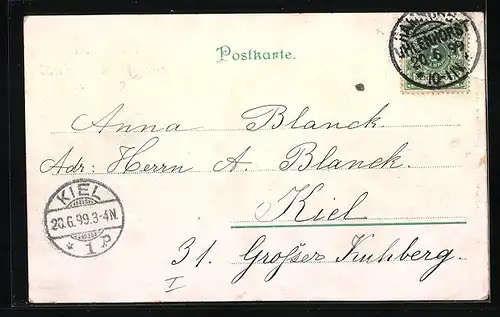 Postkarte.
UHLENHORST
5
* 10-11V.
Anna Blanck.
Adr: Herrn A. Blanck.
Kiel
31. Großer Kuhberg.
I
KIEL
26.6.99.3-4N.
* 1P